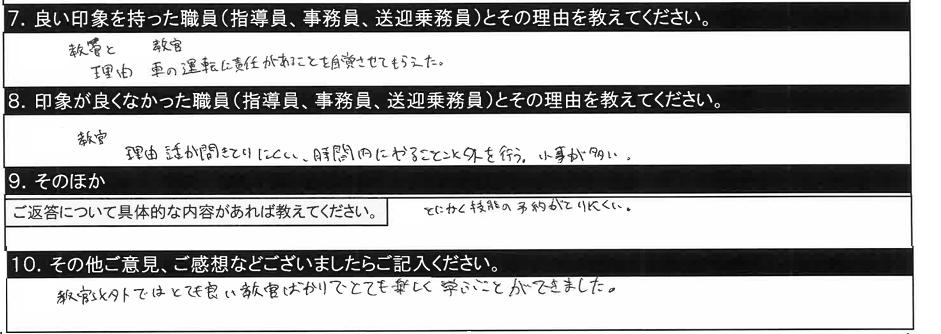 7. 良い印象を持った職員(指導員、事務員、送迎乗務員)とその理由を教えてください。
教官と 教官
理由 車の運転に責任があることを自覚させてもらえた。
8. 印象が良くなかった職員(指導員、事務員、送迎乗務員)とその理由を教えてください。
教官
理由 話が聞きとりにくい、時間内にやること以外を行う、小事が多い。
9. そのほか
ご返答について具体的な内容があれば教えてください。 とにかく技能の予約がとりにくい。
10. その他ご意見、ご感想などございましたらご記入ください。
教官以外ではとても良い教官ばかりでとても楽しく学ぶことができました。